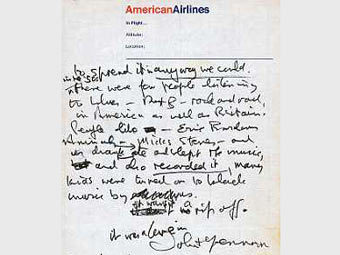 AmericanAirlines
In Flight...
Altitude:
Location:
to spread it in any way we could.
there were few people listening
to blues - R+B - rock and roll,
in America as well as Britain.
People like - Eric Burdons
Animals - Micks Stones - and
us drank ate and slept the music,
and also recorded it, many
kids were turned on to black
music by us.
it wasn't a rip off.
it was a love in
John Lennon